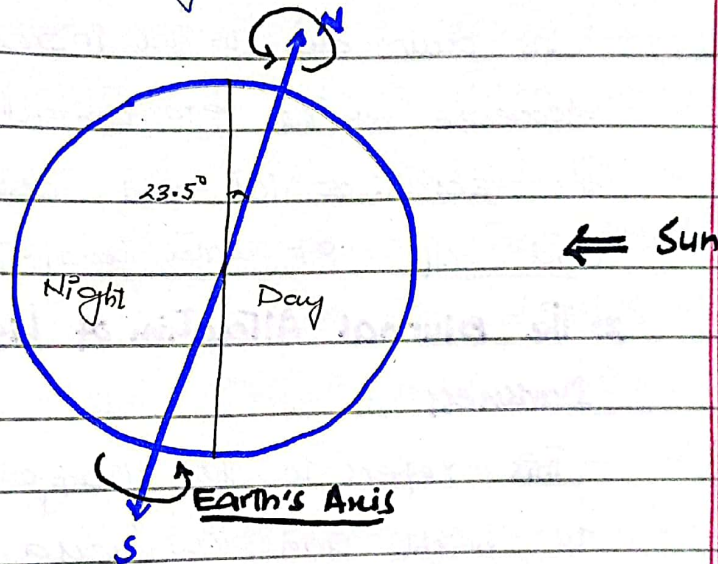 N
23.5°
Sun
Night
Day
Earth's Axis
S